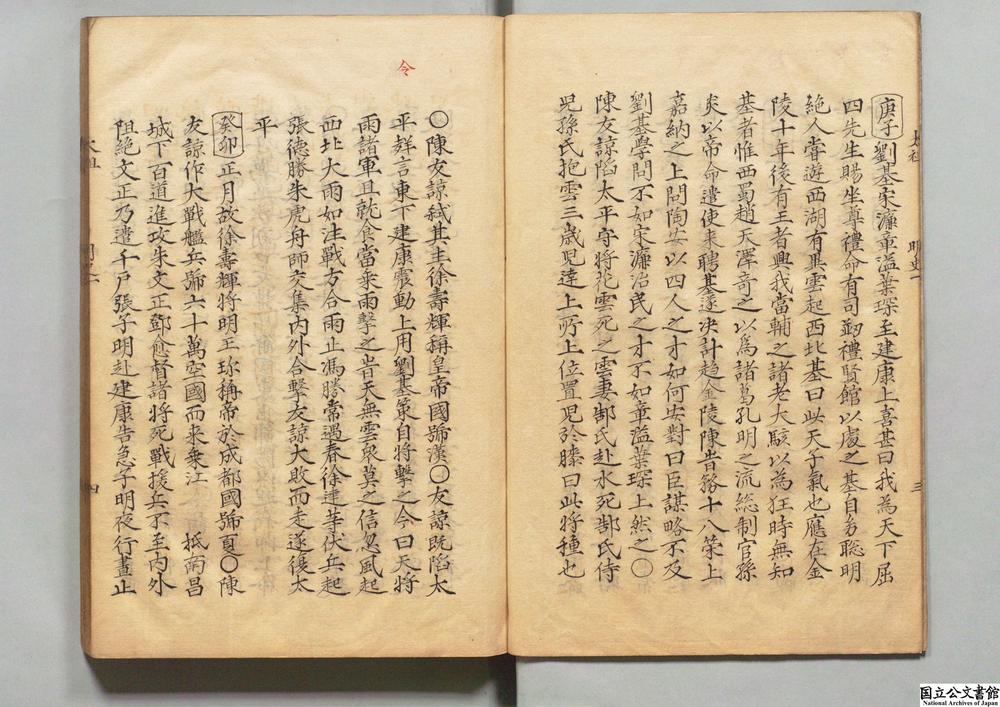 庚子劉基宋濂章溢葉琛至建康上喜甚曰我為天下屈
四先生賜坐尊禮命有司剏禮賢館以處之基自幼聡明
絶人甞遊西湖有異雲起西北基曰此天子氣也應在金
陵十年後有王者興我當輔之諸老大駭以為狂時無知
基者惟西蜀趙天澤奇之以為諸葛孔明之流総制官孫
炎以帝命遣使来聘基遂决計趨金陵陳昔務十八策上
嘉納之上問陶安以四人之才如何安對曰臣謀略不及
劉基學問不如宋濂治民之才不如章溢葉琛上然之〇
陳友諒陷太平守将花雲死之雲妻郜氏赴水死郜氏侍
児孫氏抱雲三歳児逹上所上位置児於膝曰此将種也
太祖 明史一 三
〇陳友諒弑其主徐壽輝稱皇帝國號漢〇友諒既陷太
平聲言東下建康震動上用劉基策自将擊之今曰天将
令
雨諸軍且乾食當乘雨擊之昔天無雲泉莫之信忽風起
西北大雨如注戰方合雨止馮勝常遇春徐逹等伏兵起
張德勝朱虎舟師交集内外合擊友諒大敗而走遂復太
平
癸卯正月故徐壽輝将明玉珍稱帝於成都國號夏〇陳
友諒作大戰艦兵號六十萬空國而来乗江 抵南昌
城下百道進攻朱文正鄧愈督諸将死戰援兵不至内外
阻絶文正乃遣千户張子明赴建康告急子明夜行晝止
太祖 明史一 四
国立公文書館
National Archives of Japan